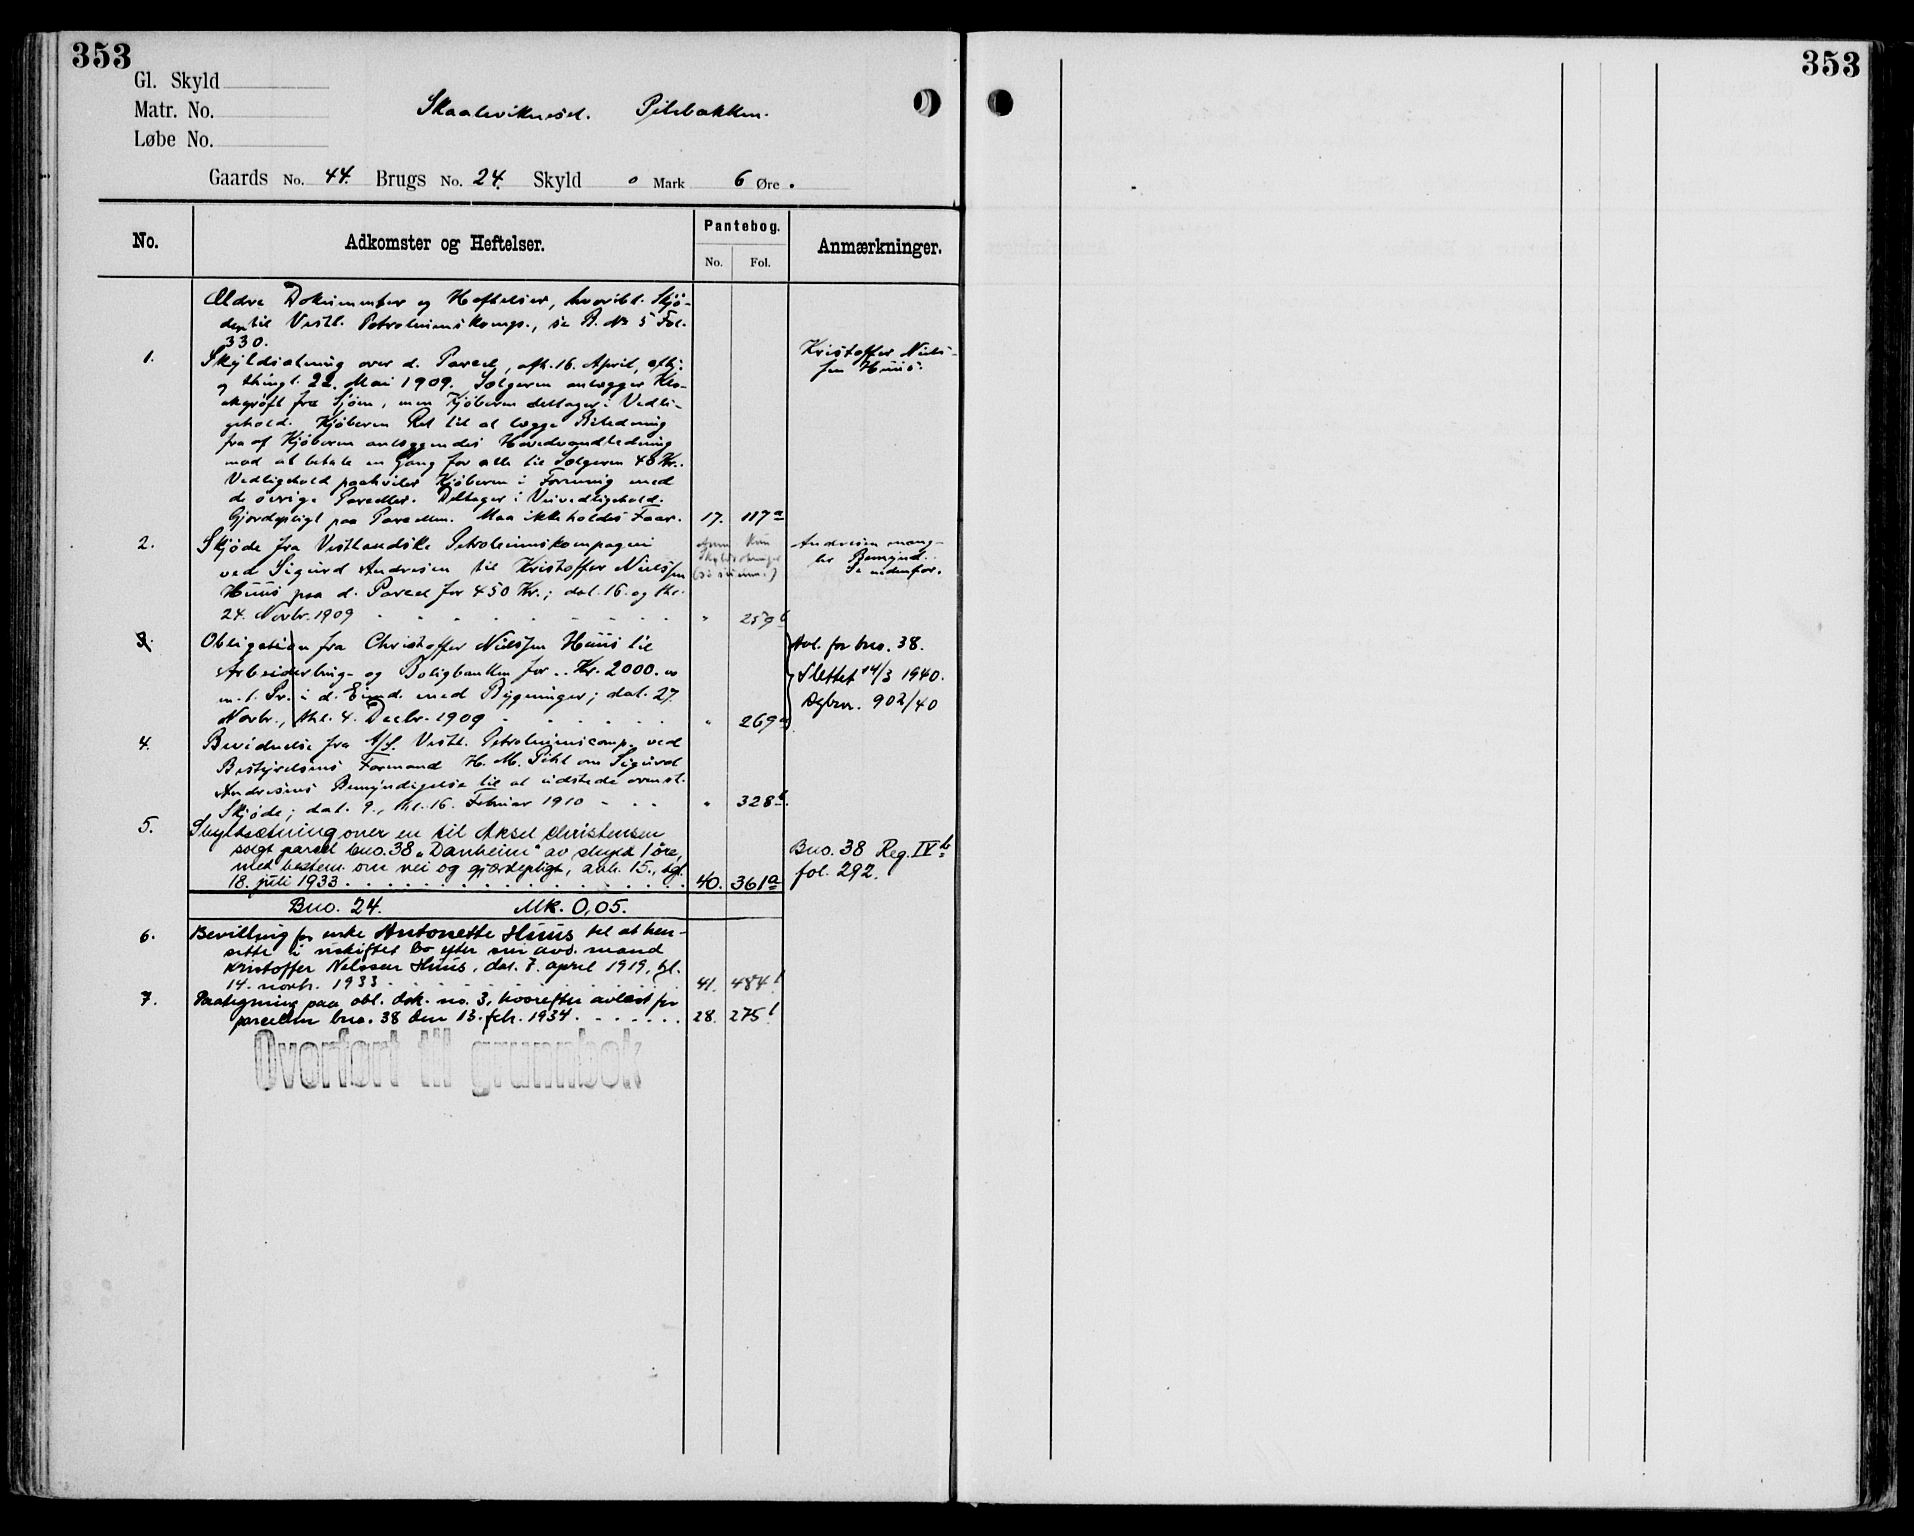 353
353
Gl. Skyld
Matr. No.
Løbe No.
Skaalevikneset. Pilebakken.
Gaards No. 44. Brugs No. 24. Skyld 0 Mark 6 Øre.
No. Adkomster og Heftelser. Pantebog. Anmærkninger.
No. Fol.
Ældre Dokumenter og Heftelser, hvoribl. Skjö-
der til Vestl. Petroleumskomp., se R. No 5 Fol.
330.
1. Skyldsætning over d. Parcel, afh. 16. April, afhj.
og thingl. 22. Mai 1909. Sælgeren anlægger Klo-
akgrøft fra Sjøen, men Kjøberen deltager i Vedli-
gehold. Kjøberen Ret til at lægge Biledning
fra af Kjøberen anlæggendes Hovedvandledning
mod at betale en Gang for alle til Sælgeren 40 Kr.
Vedligehold paahviler Kjøberen i Forening med
de øvrige Parceller. Deltager i Veivedligehold.
Gjerdepligt paa Parcellen. Maa ikke holdes Faar. 17. 117a
Kristoffer Niels-
sen Huus.
2. Skjøde fra Vestlandske Petroleumskompagni
ved Sigurd Andresen til Kristoffer Nielssen
Huus paa d. Parcel for 450 Kr.; dat. 16. og thl.
24. Novbr. 1909 " 259b
Andresen mang-
ler Bemynd.
Se nedenfor.
3. Obligation fra Christoffer Nielssen Huus til
Arbeiderbrug- og Boligbanken for .. Kr. 2000.00
m. 1. Pr. i d. Eiend. med Bygninger; dat. 27.
Novbr., thl. 4. Decbr. 1909 " 269a
Avl. for bno. 38.
Slettet 14/3 1940.
Dgbnr. 902/40
4. Bevidnelse fra A/S. Vestl. Petroleumscomp. ved
Bestyrelsens Formand H. M. Pihl om Sigurd
Andresens Bemyndigelse til at udstede ovenst.
Skjøde; dat. 9., thl. 16. Februar 1910 " 328b.
5. Skyldsætning over en til Aksel Christensen
solgt parcel bno. 38 „Danheim" av skyld 1 øre,
med bestem. om vei og gjærdepligt, avh. 15., tgl.
18. juli 1933 40. 361a
Bno. 38 Reg. IVb
fol. 292.
Bno. 24. Mk. 0,05.
6. Bevilling for enke Antonette Huus til at hen-
sitte i uskiftet bo efter sin avd. mand
Kristoffer Nelssen Huus, dat. 7. april 1919, tgl.
14. novbr. 1933 41. 484b
7. Paategning paa obl. dok. no. 3, hvorefter avlæst for
parcellen bno. 38 den 13. febr. 1934. 28. 275b
Overført til grunnbok